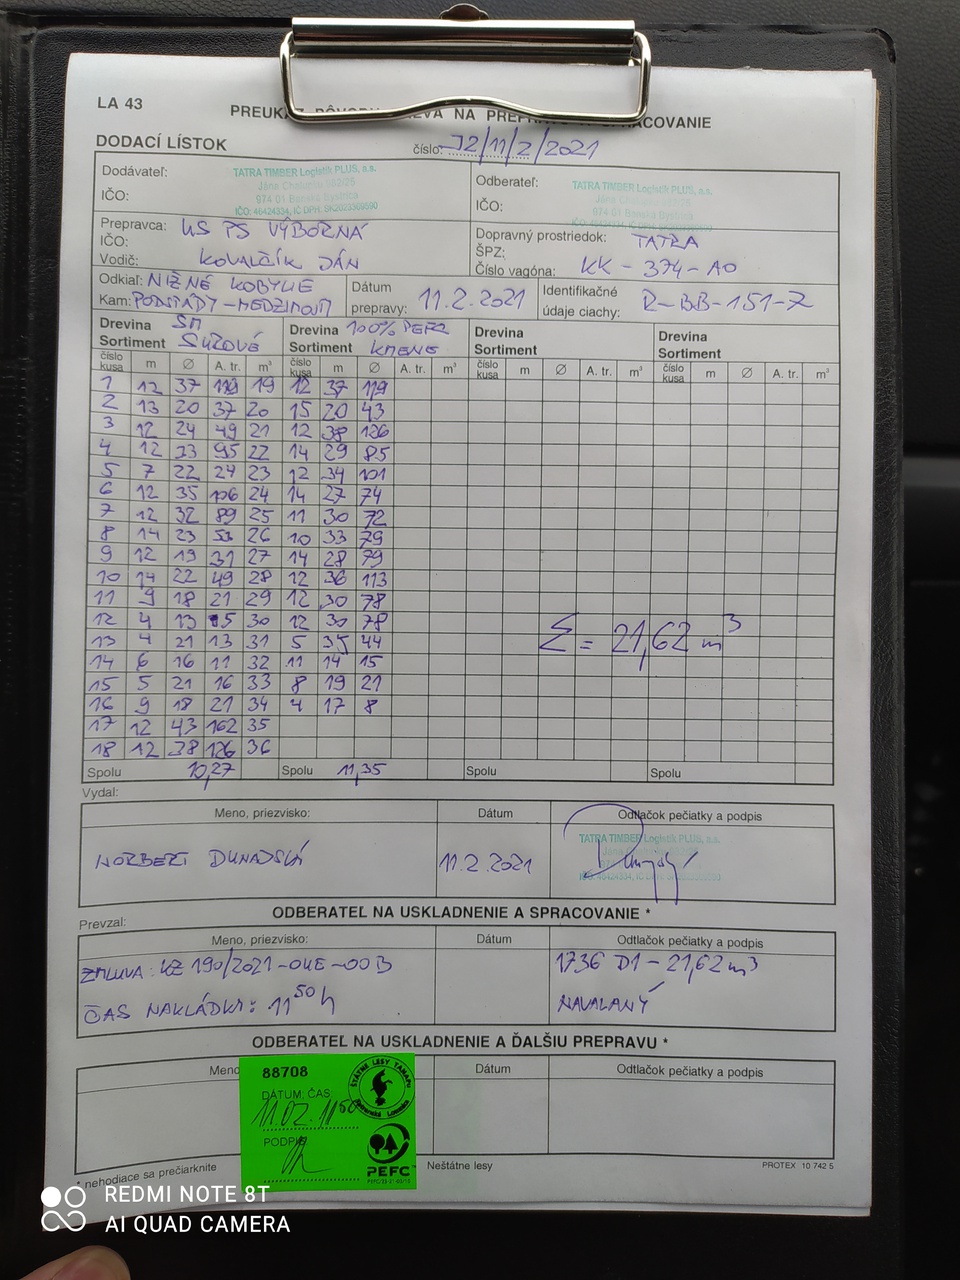 LA 43
PREUKAZ PÔVODU DREVA NA PREPRAVU SPRACOVANIE
DODACÍ LÍSTOK
číslo: J2/11/2/2021
Dodávateľ: TATRA TIMBER Logistik PLUS, s.s.
974 01 Banská Bystrica
IČO: IČO: 46424334, IČ DPH: SK2023369590
Odberateľ: TATRA TIMBER Logistik PLUS, s.s.
974 01 Banská Bystrica
IČO:
Prepravca: US PS VÝBORNÁ
IČO:
Vodič: KOVALČÍK JÁN
Dopravný prostriedok: TATRA
ŠPZ:
Číslo vagóna: KK - 374 - AO
Odkiaľ: NIŽNÉ KOBYLIE
Kam: PODSTÁDY - MEDZIMOSTÍ
Dátum prepravy: 11.2.2021
Identifikačné údaje ciachy: R-BB-151-7
Drevina SM Drevina 100% PEFC Drevina Drevina
Sortiment SUROVÉ Sortiment KMENE Sortiment Sortiment
číslo kusa m Ø A. tr. m³ číslo kusa m Ø A. tr. m³ číslo kusa m Ø A. tr. m³ číslo kusa m Ø A. tr. m³
1 12 37 119 19 12 37 119
2 13 20 37 20 15 20 43
3 12 24 49 21 12 38 126
4 12 33 95 22 14 29 85
5 7 22 24 23 12 34 101
6 12 35 106 24 14 27 74
7 12 32 89 25 11 30 72
8 14 23 53 26 10 33 79
9 12 19 31 27 14 28 79
10 14 22 49 28 12 36 113
11 9 18 21 29 12 30 78
12 4 13 5 30 12 30 78
13 4 21 13 31 5 35 44
14 6 16 11 32 11 14 15
15 5 21 16 33 8 19 21
16 9 18 21 34 4 17 8
17 12 43 162 35
18 12 38 126 36
Σ = 21,62 m³
Spolu 10,27 Spolu 11,35 Spolu Spolu
Vydal:
Meno, priezvisko: Dátum Odtlačok pečiatky a podpis
NORBERT DUNAJSKÝ 11.2.2021 TATRA TIMBER Logistik PLUS, s.s.
IČO: 46424334, IČ DPH: SK2023369590
ODBERATEĽ NA USKLADNENIE A SPRACOVANIE *
Prevzal:
Meno, priezvisko: Dátum Odtlačok pečiatky a podpis
ZMLUVA: KZ 190/2021-OKE-OOB 1736 D1 - 21,62 m³
ČAS NAKLÁDKY: 11⁵⁰ h NAVALANÝ
ODBERATEĽ NA USKLADNENIE A ĎALŠIU PREPRAVU *
Meno Dátum Odtlačok pečiatky a podpis
88708
DÁTUM, ČAS
11.02. 11⁵⁰
PODPIS
ŠTÁTNE LESY TANAPu
Tatranská Lomnica
PEFC
* nehodiace sa prečiarknite
Neštátne lesy
PROTEX 10 742 5
REDMI NOTE 8T
AI QUAD CAMERA